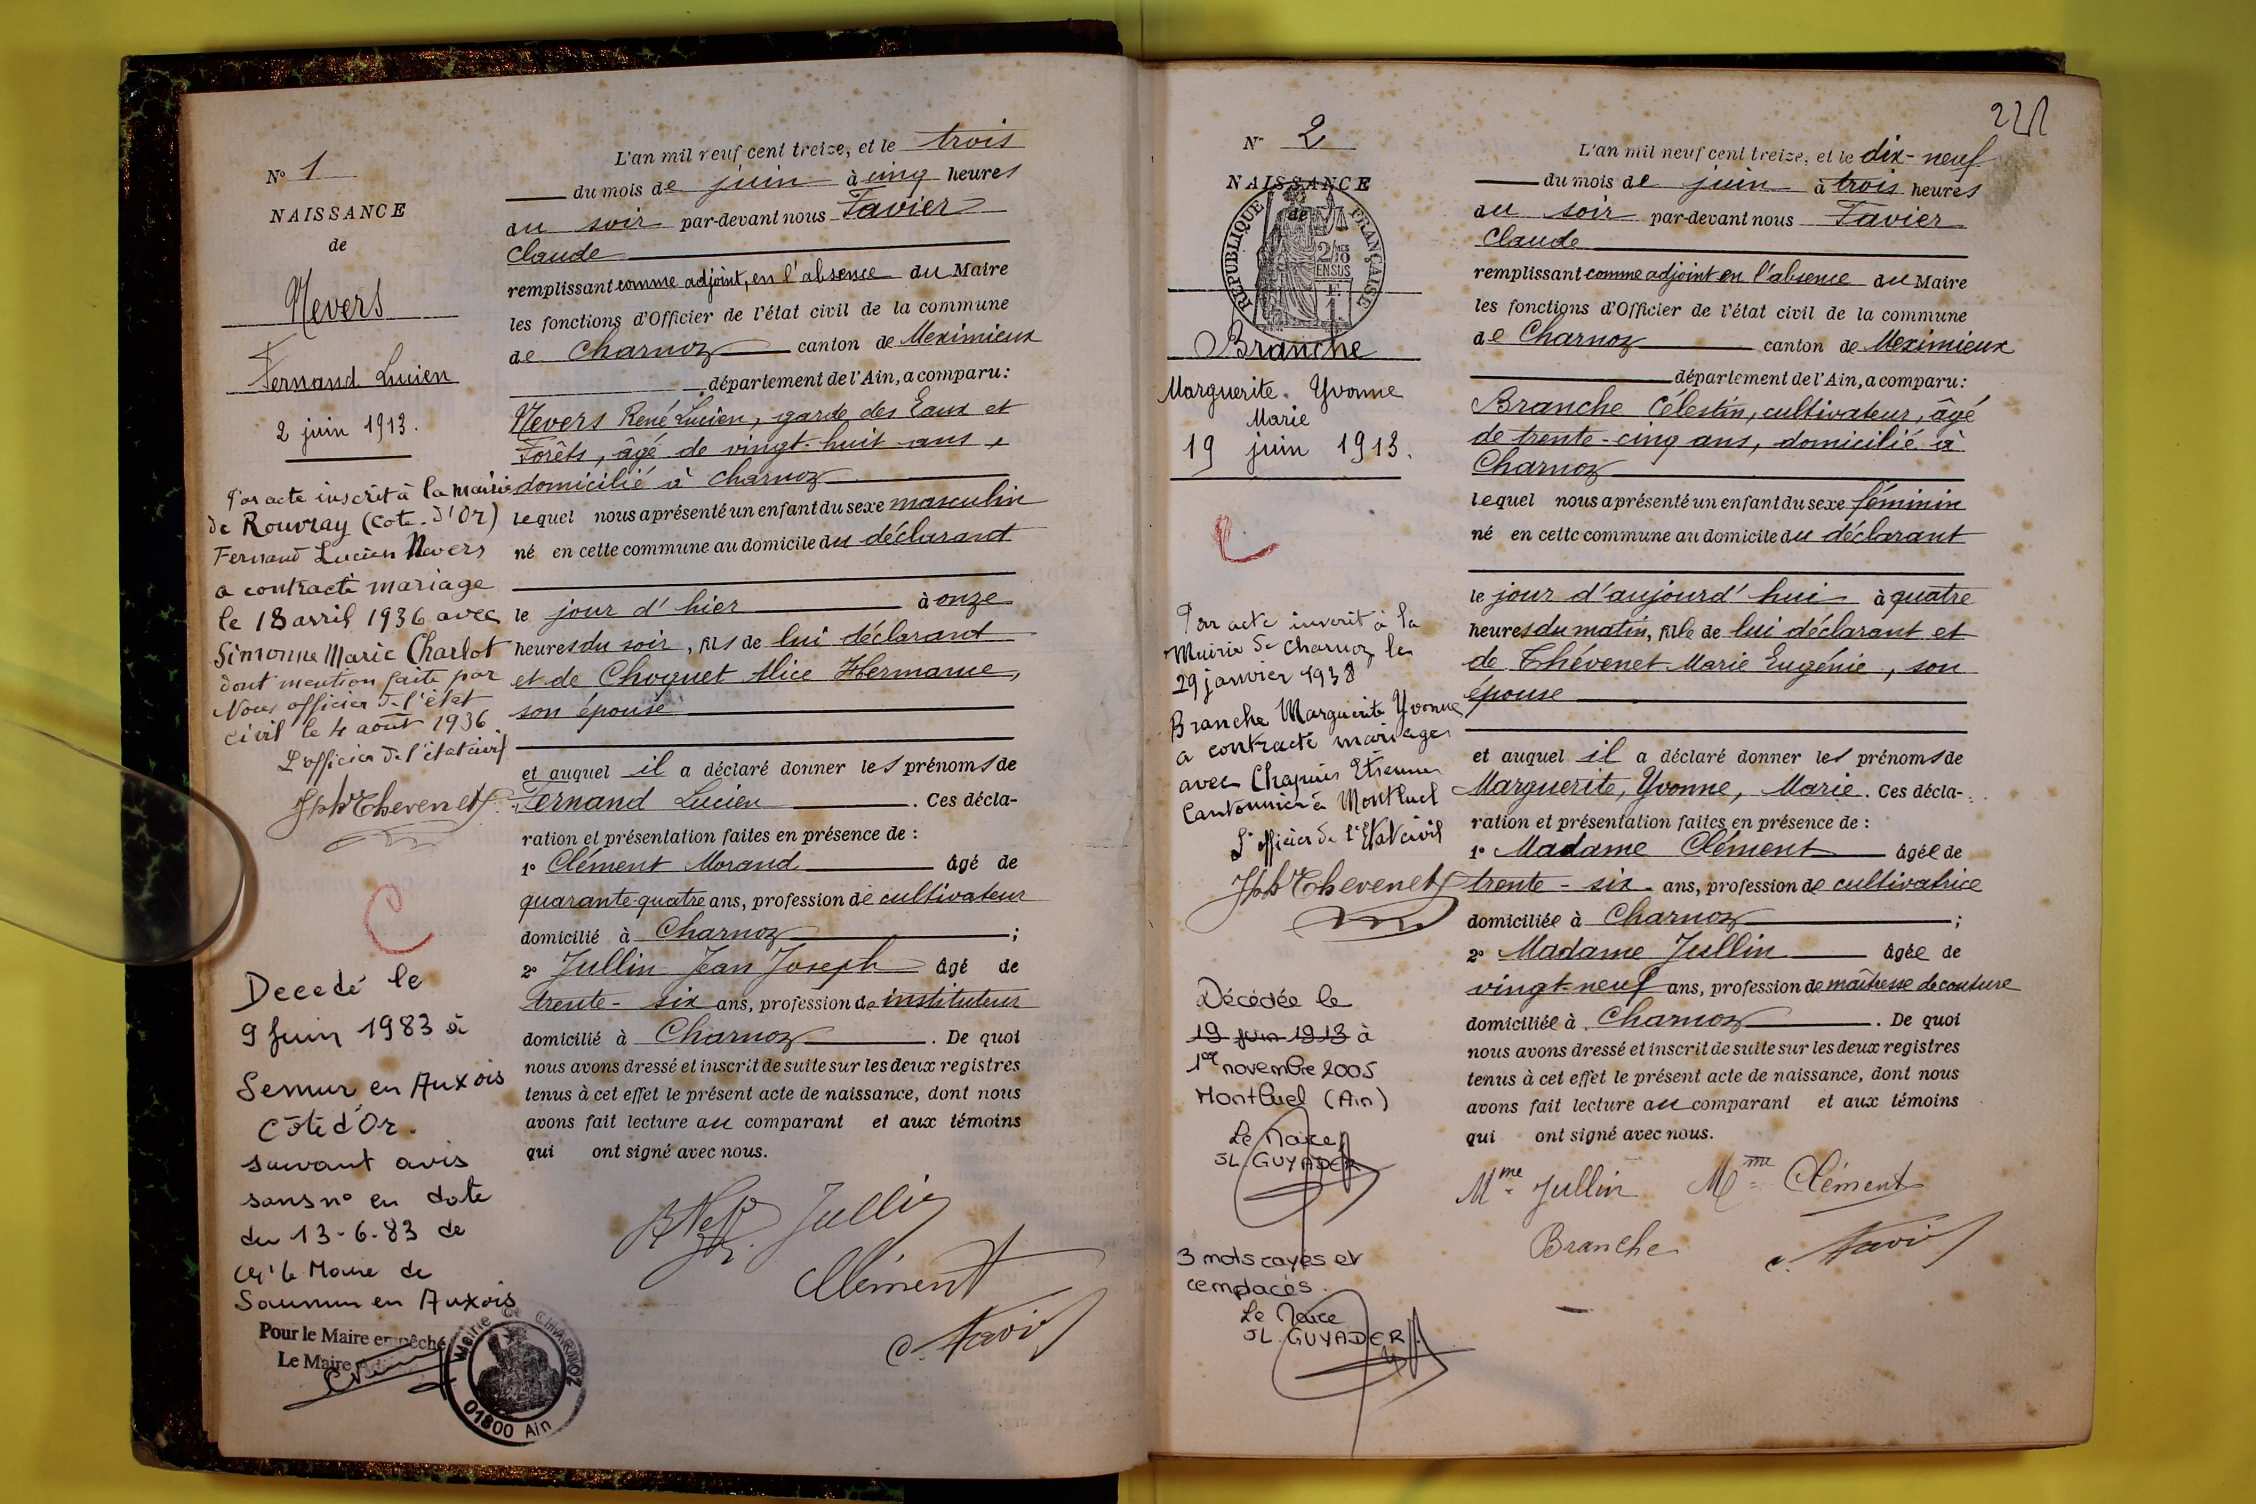 N° 1
NAISSANCE
de
Nevers
Fernand Lucien
2 juin 1913.
Par acte inscrit à la mairie
de Rouvray (Cote-d'Or)
Fernand Lucien Nevers
a contracté mariage
le 18 avril 1936 avec
Simonne Marie Charlot
dont mention faite par
Nous officier de l'état
civil le 4 août 1936
L'officier de l'état civil
Jph Thevenet
C
Decedé le
9 Juin 1983 à
Semur en Auxois
Côte d'Or.
suivant avis
sans n° en date
du 13-6-83 de
le Maire de
en Auxois
Pour le Maire empêché
Le Maire Adjoint
Mairie de CHARNOZ
01800 Ain
L'an mil neuf cent treize, et le trois
du mois de juin à cinq heures
du soir par-devant nous Favier
Claude
remplissant comme adjoint, en l'absence du Maire
les fonctions d'Officier de l'état civil de la commune
de Charnoz canton de Meximieux
département de l'Ain, a comparu:
Nevers René Lucien, garde des Eaux et
Forêts, âgé de vingt-huit ans,
domicilié à Charnoz
lequel nous a présenté un enfant du sexe masculin
né en cette commune au domicile du déclarant
le jour d'hier à onze
heures du soir, fils de lui déclarant
et de Choquet Alice Hermance,
son épouse
et auquel il a déclaré donner les prénoms de
Fernand Lucien. Ces décla-
ration et présentation faites en présence de :
1° Clément Morand âgé de
quarante-quatre ans, profession de cultivateur
domicilié à Charnoz ;
2° Jullin Jean Joseph âgé de
trente-six ans, profession de instituteur
domicilié à Charnoz. De quoi
nous avons dressé et inscrit de suite sur les deux registres
tenus à cet effet le présent acte de naissance, dont nous
avons fait lecture au comparant et aux témoins
qui ont signé avec nous.
Jullin
Clément
C. Favier
221
N° 2
NAISSANCE
de
RÉPUBLIQUE FRANÇAISE
2/10 MES
EN SUS
Branche
Marguerite. Yvonne
Marie
19 juin 1913.
C
Par acte inscrit à la
Mairie de Charnoz le
29 janvier 1938
Branche Marguerite Yvonne
a contracté mariage
avec Chapuis Etienne
Cantonnier à Montluel
L'officier de l'Etat civil
Jph Thevenet
Décédée le
19 juin 1913 à
1er novembre 2005
Montluel (Ain)
Le Maire
JL. GUYADER
3 mots rayés et
remplacés.
Le Maire
JL. GUYADER
L'an mil neuf cent treize, et le dix-neuf
du mois de juin à trois heures
du soir par-devant nous Favier
Claude
remplissant comme adjoint en l'absence du Maire
les fonctions d'Officier de l'état civil de la commune
de Charnoz canton de Meximieux
département de l'Ain, a comparu:
Branche Célestin, cultivateur, âgé
de trente-cinq ans, domicilié à
Charnoz
lequel nous a présenté un enfant du sexe féminin
né en cette commune au domicile du déclarant
le jour d'aujourd'hui à quatre
heures du matin, fille de lui déclarant et
de Thévenet Marie Eugénie, son
épouse
et auquel il a déclaré donner les prénoms de
Marguerite, Yvonne, Marie. Ces décla-
ration et présentation faites en présence de :
1° Madame Clément âgée de
trente-six ans, profession de cultivatrice
domiciliée à Charnoz ;
2° Madame Jullin âgée de
vingt-neuf ans, profession de maîtresse de couture
domiciliée à Charnoz. De quoi
nous avons dressé et inscrit de suite sur les deux registres
tenus à cet effet le présent acte de naissance, dont nous
avons fait lecture au comparant et aux témoins
qui ont signé avec nous.
Mme Jullin Mme Clément
Branche C. Favier